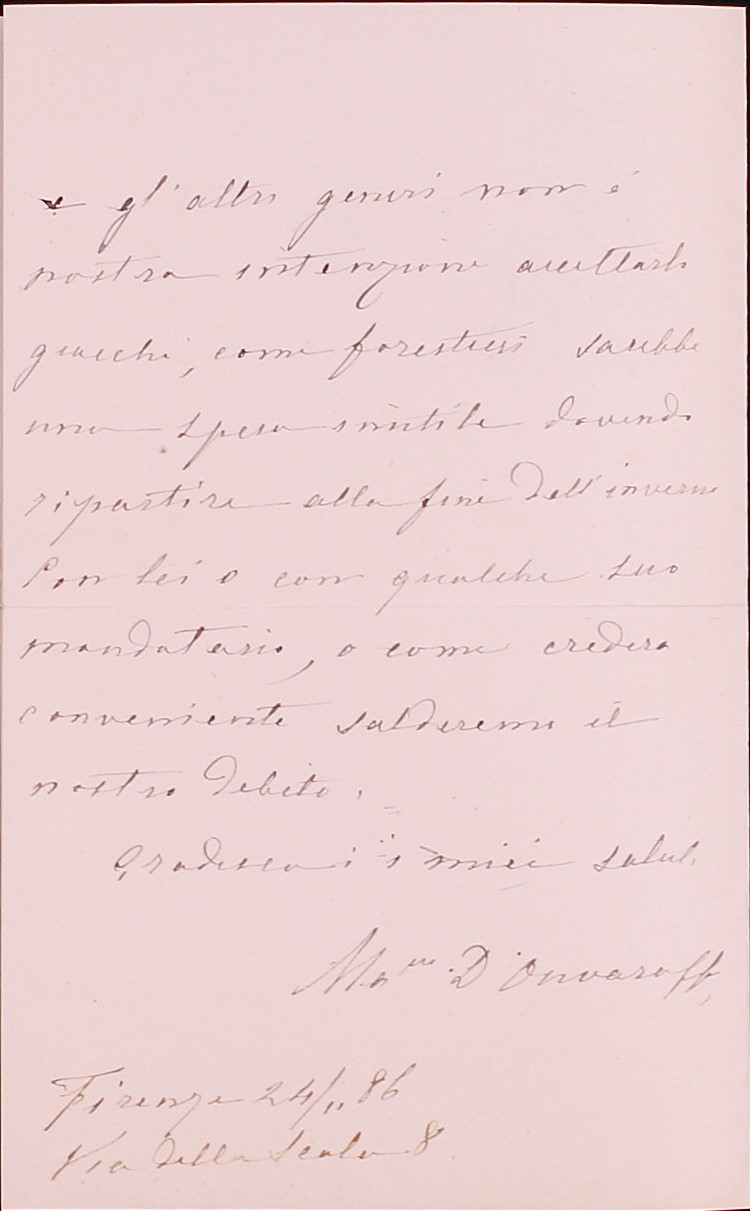 e gl'altri generi non è
nostra intenzione accettarli
giacchi, come forestieri sarebbe
una spesa inutile dovendo
ripartire alla fine dell'inverno
Con lei o con qualche suo
mandatario, o come credera
conveniente salderemo il
nostro debito.
Gradisca i miei saluti
M.me D'Ouvaroff
Firenze 24/11 86
Via della Scala 8